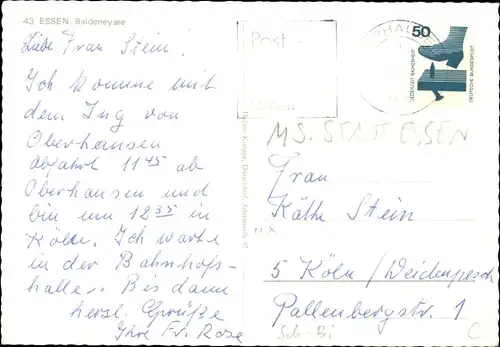 43 ESSEN. Baldeneysee
Liebe Frau Stein!
Ich komme mit
dem Zug von
Oberhausen
Abfahrt 11 45 ab
Oberhausen und
bin um 12 35 in
Köln. Ich warte
in der Bahnhofs-
halle. Bis dann
herzl. Grüße
Ihre Fr. Rose
Post
50
JEDERZEIT SICHERHEIT
DEUTSCHE BUNDESPOST
MS. STADT ESSEN
Frau
Käthe Stein
5 Köln / Weidenpesch
Pallenbergstr. 1
Sch-Bi
C